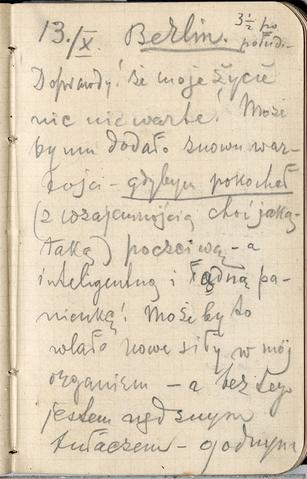 13./X. Berlin. 3 1/2 po połud.
Doprawdy! że moje życie
nic nie warte! Może
by mu dodało znowu war-
tości - gdybym pokochał
(z wzajemnością choć jaką-
taką) poczciwą - a
inteligentną i ładną pa-
nienkę! Może by to
wlało nowe siły w mój
organizm - a bez tego
jestem nędznym
tułaczem - godnym